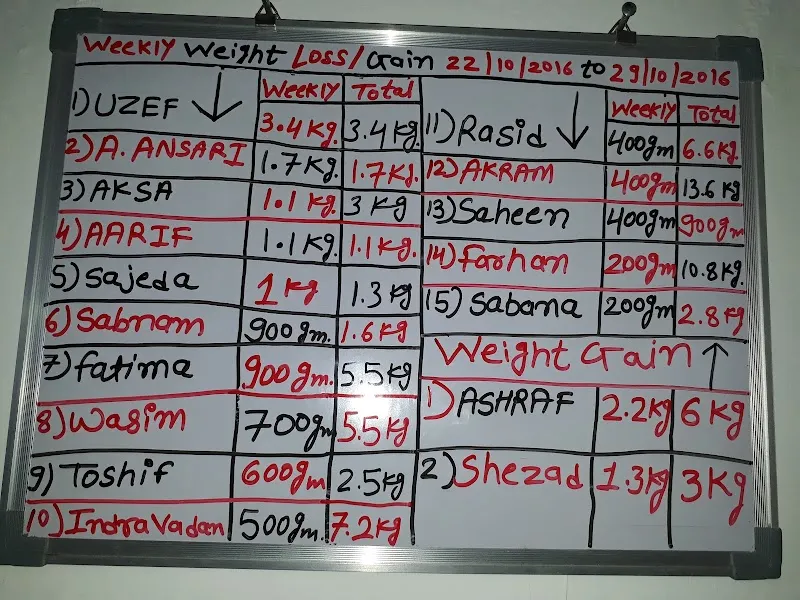 Weekly Weight Loss/Gain 22/10/2016 to 29/10/2016
Weekly Total
1) UZEF ↓ 3.4 Kg. 3.4 Kg.
2) A. ANSARI 1.7 Kg. 1.7 Kg.
3) AKSA 1.1 Kg. 3 Kg
4) AARIF 1.1 Kg. 1.1 Kg.
5) Sajeda 1 Kg 1.3 Kg
6) Sabnam 900 gm. 1.6 Kg
7) fatima 900 gm. 5.5 Kg
8) Wasim 700 gm 5.5 Kg
9) Toshif 600 gm 2.5 Kg
10) Indra Vadan 500 gm. 7.2 Kg
Weekly Total
11) Rasid ↓ 400 gm 6.6 Kg.
12) AKRAM 400 gm 13.6 Kg
13) Saheen 400 gm 900 gm
14) Farhan 200 gm 10.8 Kg.
15) Sabana 200 gm 2.8 Kg
Weight Gain ↑
1) ASHRAF 2.2 Kg 6 Kg
2) Shezad 1.3 Kg 3 Kg